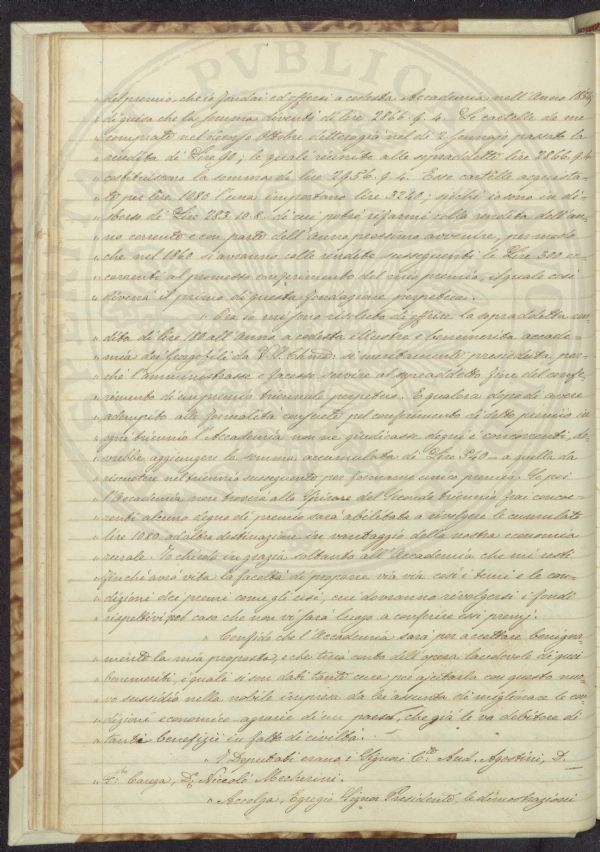 " del premio, che io fondai ed offersi a codesta Accademia nell'Anno 185
" di guisa che la somma diventi di lire 2866. 9. 4. Le cartelle da me
" comprate nel scorso Ottobre dettero già nel dì 2 Gennajo passato la
" rendita di Lire 90; le quali riunite alle sopraddette lire 2866. 9. 4
" costituiscono la somma di lire 2956. 9. 4. Esse cartelle acquista-
" te per lire 1080 l'una importano lire 3240; sicchè io sono in di-
" sborso di Lire 283. 10. 8. di cui potrò rifarmi colla rendita dell'an-
" no corrente e con parte dell'anno prossimo avvenire, per modo
" che nel 1860 si avranno colle rendite susseguenti le Lire 300 oc-
" correnti al promesso conferimento del mio premio, il quale così
" diverrà il primo di questa fondazione perpetua.
" Ora io mi sono risoluto di offrire la sopraddetta ren-
" dita di lire 180 all'Anno a codesta illustre e benemerita accade-
" mia dei Georgofili da V. S. Chma: sì meritamente presieduta, per-
" chè l'amministrasse e facesse servire al sopraddetto fine del confe-
" rimento di un premio triennale perpetuo. E qualora dopo di avere
" adempito alle formalità consuete pel conferimento di detto premio in
" ogni triennio l'Accademia non ne giudicasse degni i concorrenti, do-
" vrebbe aggiungere la somma accumulata di Lire 540 – a quella da
" riscuotere nel triennio susseguente per formarne unico premio. Se poi
" l'Accademia non troverà allo spirare del secondo triennio frai concor-
" renti alcuno degno di premio sarà abilitata a rivolgere le cumulate
" lire 1080 ad altra destinazione in vantaggio della nostra economia
" rurale. Io chiedo in grazia soltanto all'Accademia che mi resti
" finchè avrò vita la facoltà di proporre via via così i temi e le con-
" dizioni dei premi come gli usi, cui dovranno rivolgersi i fondi
" rispettivi pel caso che non vi sarà luogo a conferire essi premj.
" Confido che l'Accademia sarà per accettare benigna-
" mente la mia proposta, e che terrà conto dell'opera lodevole di quei
" benemeriti, i quali si son dati tante cure per ajutarla con questo nuo-
" vo sussidio nella nobile impresa da lei assunta di migliorare le con-
" dizioni economico-agrarie di un paese, che già le va debitore di
" tanti benefizii in fatto di civiltà.
" I Deputati erano i Signori C.te And. Agostini, D.
" Canga, D. Niccolò Mecherini.
" Accolga, Egregio Signor Presidente le dimostrazioni